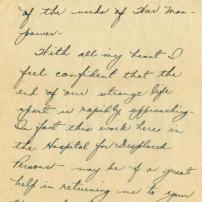 of the needs of War Man-
power.
With all my heart I
feel confident that the
end of our strange life
apart is rapidly approaching.
In fact this work here in
the Hospital for Displaced
Persons - may be of a great
help in returning me to your